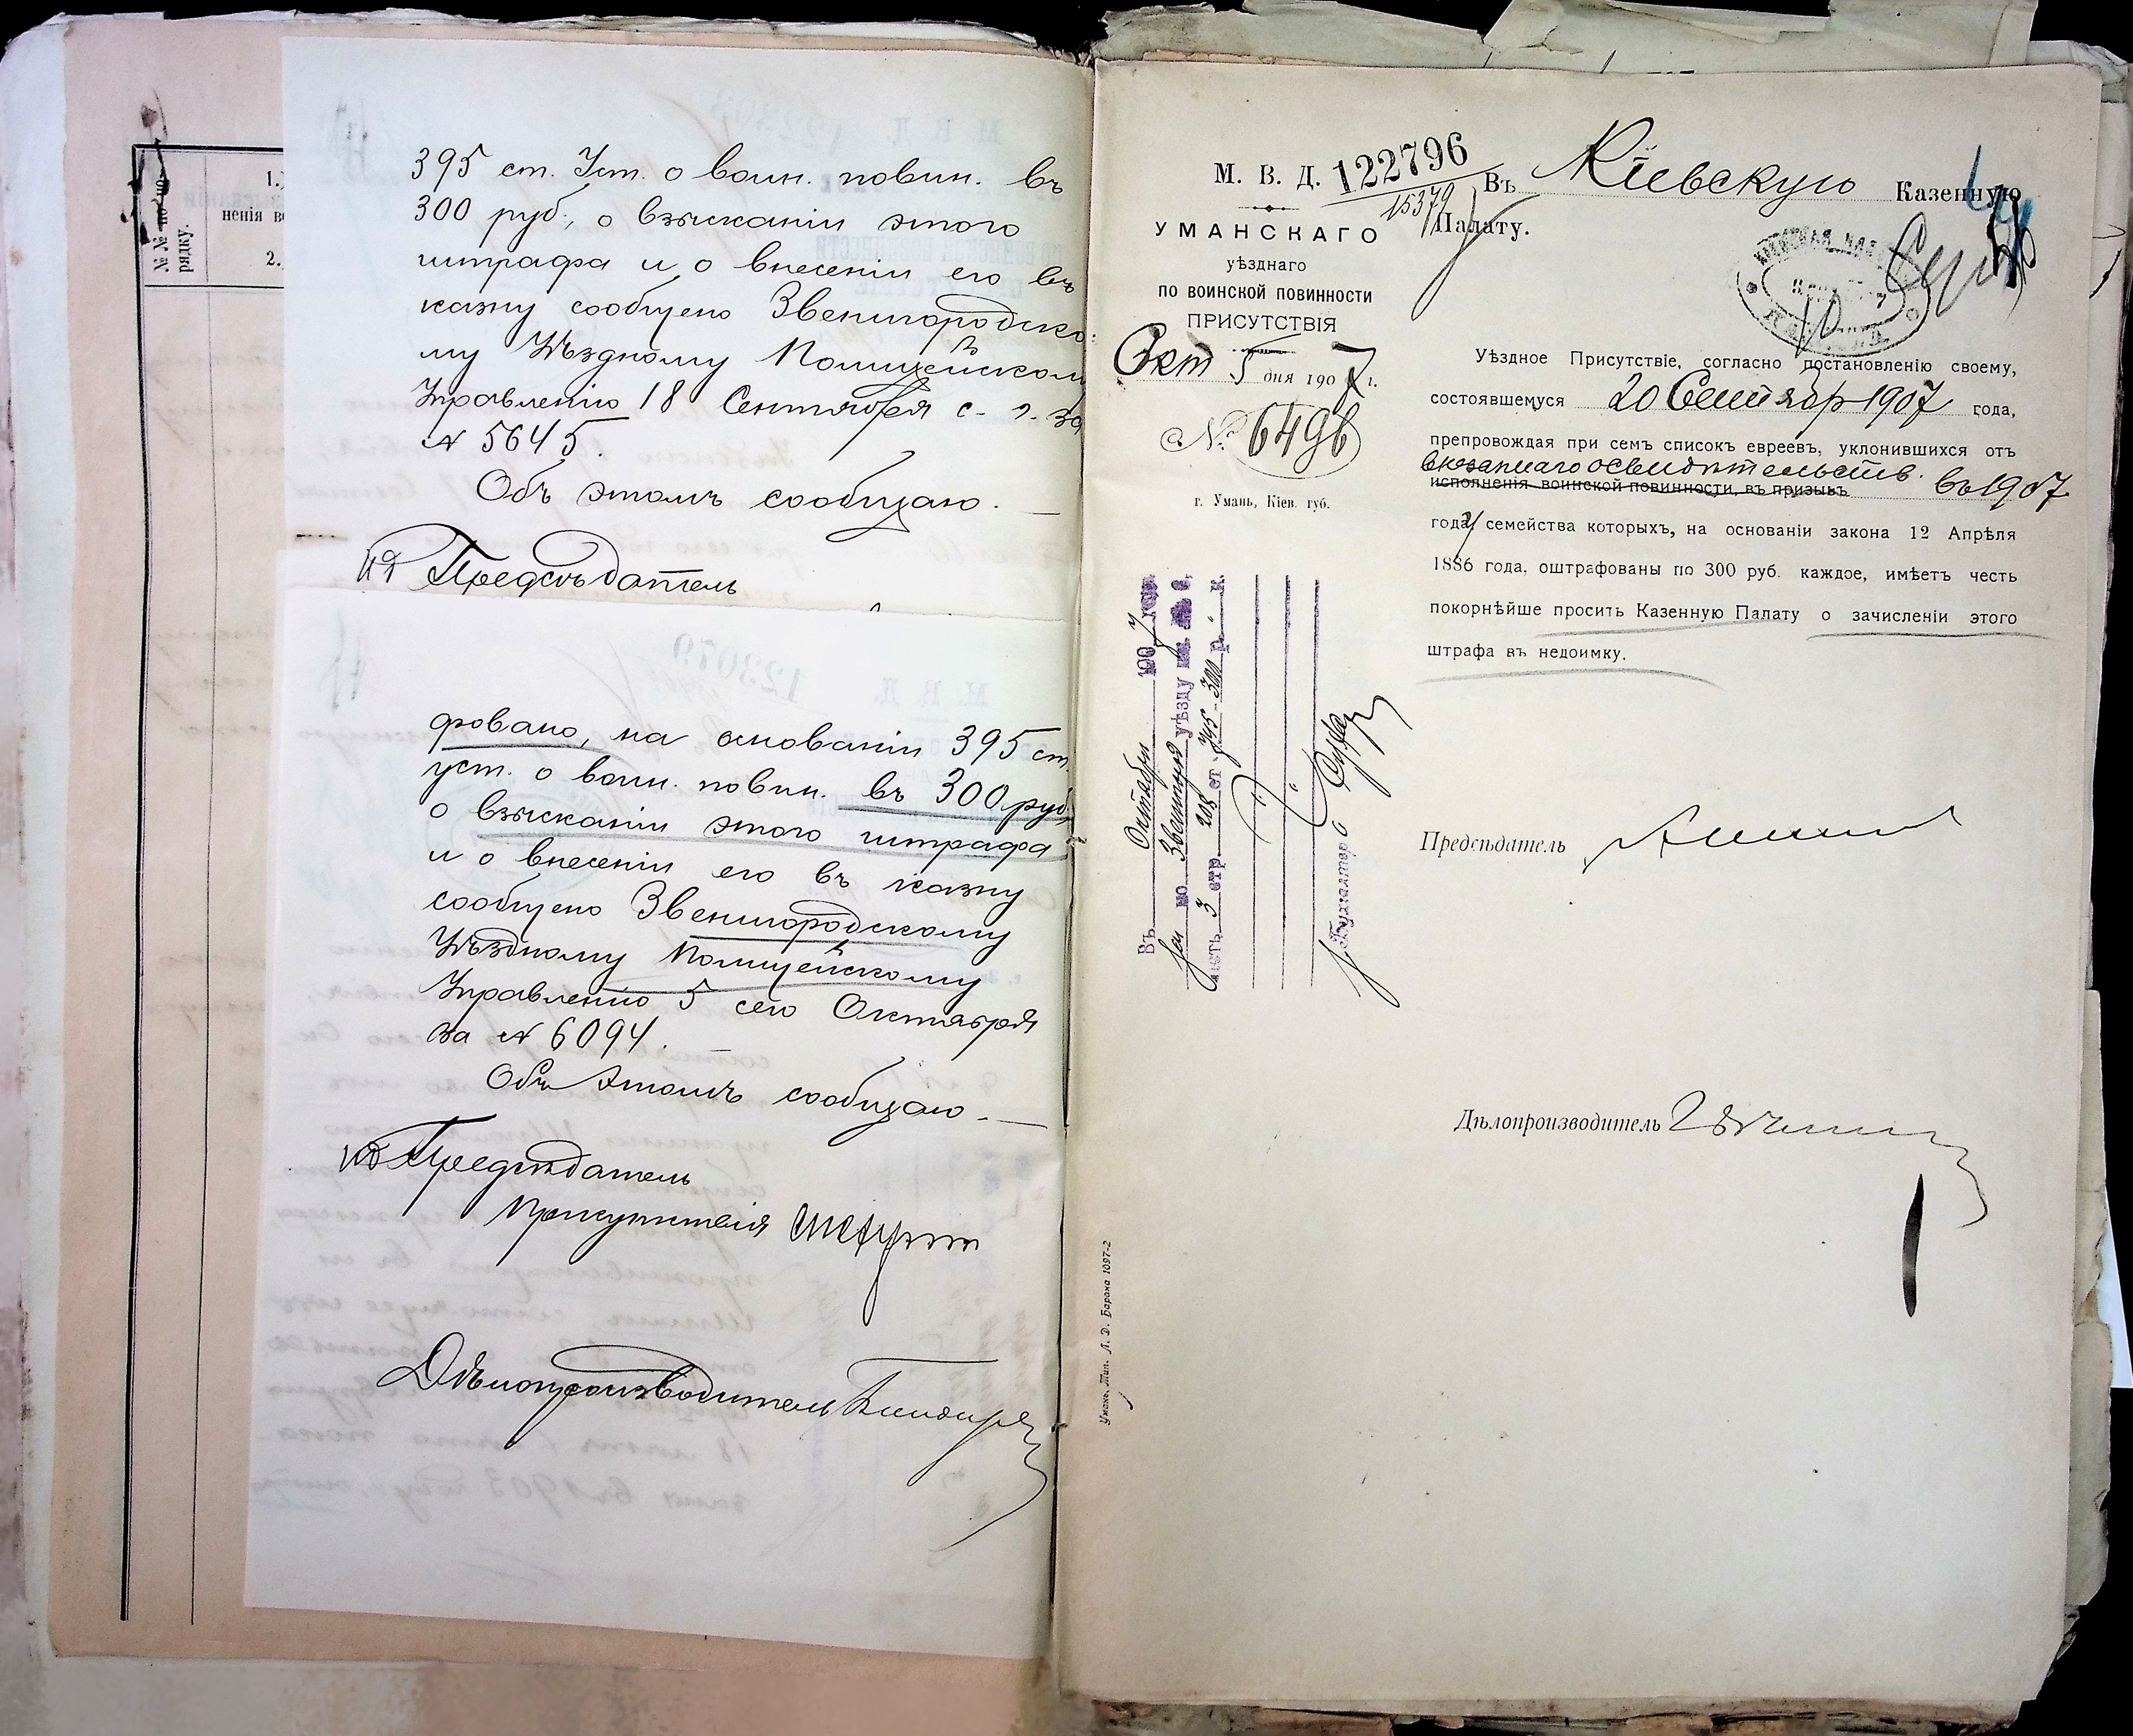 №№ по по-
рядку.
1.
ненія в
2.
395 ст. Уст. о воин. повин. въ
300 руб., о взысканіи этого
штрафа и о внесеніи его въ
казну сообщено Звенигородско-
му Уѣздному Полицейском
Управленію 18 Сентября с. г. за
№ 5645.
Объ этомъ сообщаю.
Предсѣдатель
фовано, на основаніи 395 ст.
уст. о воин. повин. въ 300 руб.
о взысканіи этого штрафа
и о внесеніи его въ казну
сообщено Звенигородскому
Уѣздному Полицейскому
Управленію 5 сего Октября
за № 6094.
Объ этомъ сообщаю.
Предсѣдатель
Присутствія
Дѣлопроизводитель
М. В. Д.
122796
15379
УМАНСКАГО
уѣзднаго
ПО ВОИНСКОЙ ПОВИННОСТИ
ПРИСУТСТВІЯ
Окт 5 дня 1907 г.
№ 6496
г. Умань, Кіев. губ.
Въ Кіевскую Казенную
Палату.
Уѣздное Присутствіе, согласно постановленію своему,
состоявшемуся 20 Сентябр 1907 года,
препровождая при семъ списокъ евреевъ, уклонившихся отъ
освидѣтельств. въ 1907
исполненія воинской повинности, въ призывъ
года, семейства которыхъ, на основаніи закона 12 Апрѣля
1886 года, оштрафованы по 300 руб. каждое, имѣетъ честь
покорнѣйше просить Казенную Палату о зачисленіи этого
штрафа въ недоимку.
Въ Октябрѣ 1907
по уѣзду
3 стр. 208 ст.
Бухгалтеръ
Предсѣдатель
Дѣлопроизводитель
Умань, Тип. Л. Д. Барана 1097-2